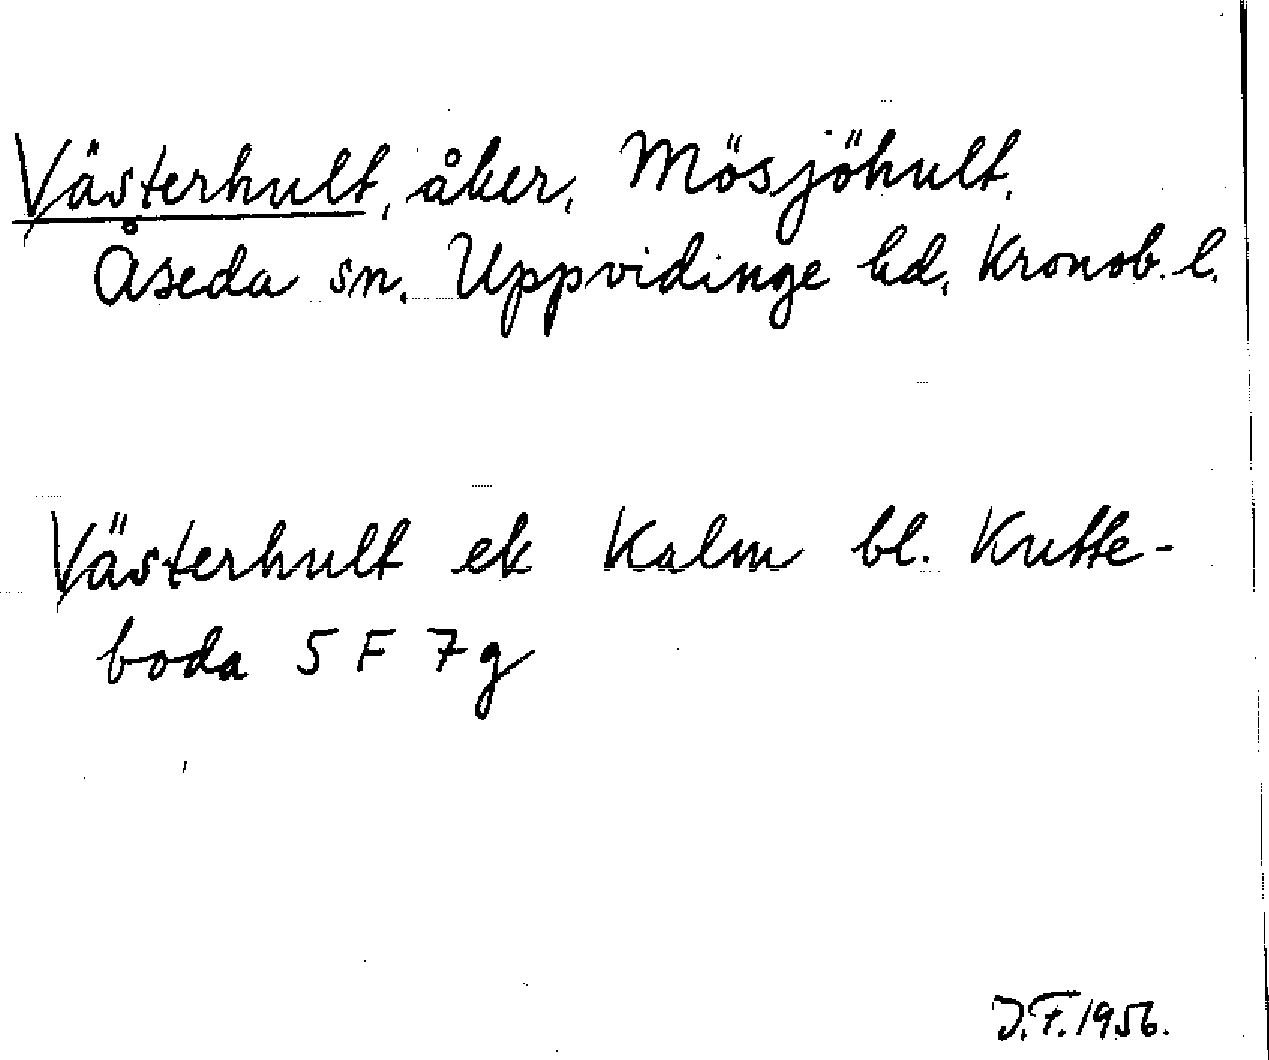 Västerhult, åker, Mösjöhult,
Åseda sn. Uppvidinge hd, Kronob. l.
Västerhult ek Kalm bl. Kutte-
boda 5 F 7g
J.F. 1956.